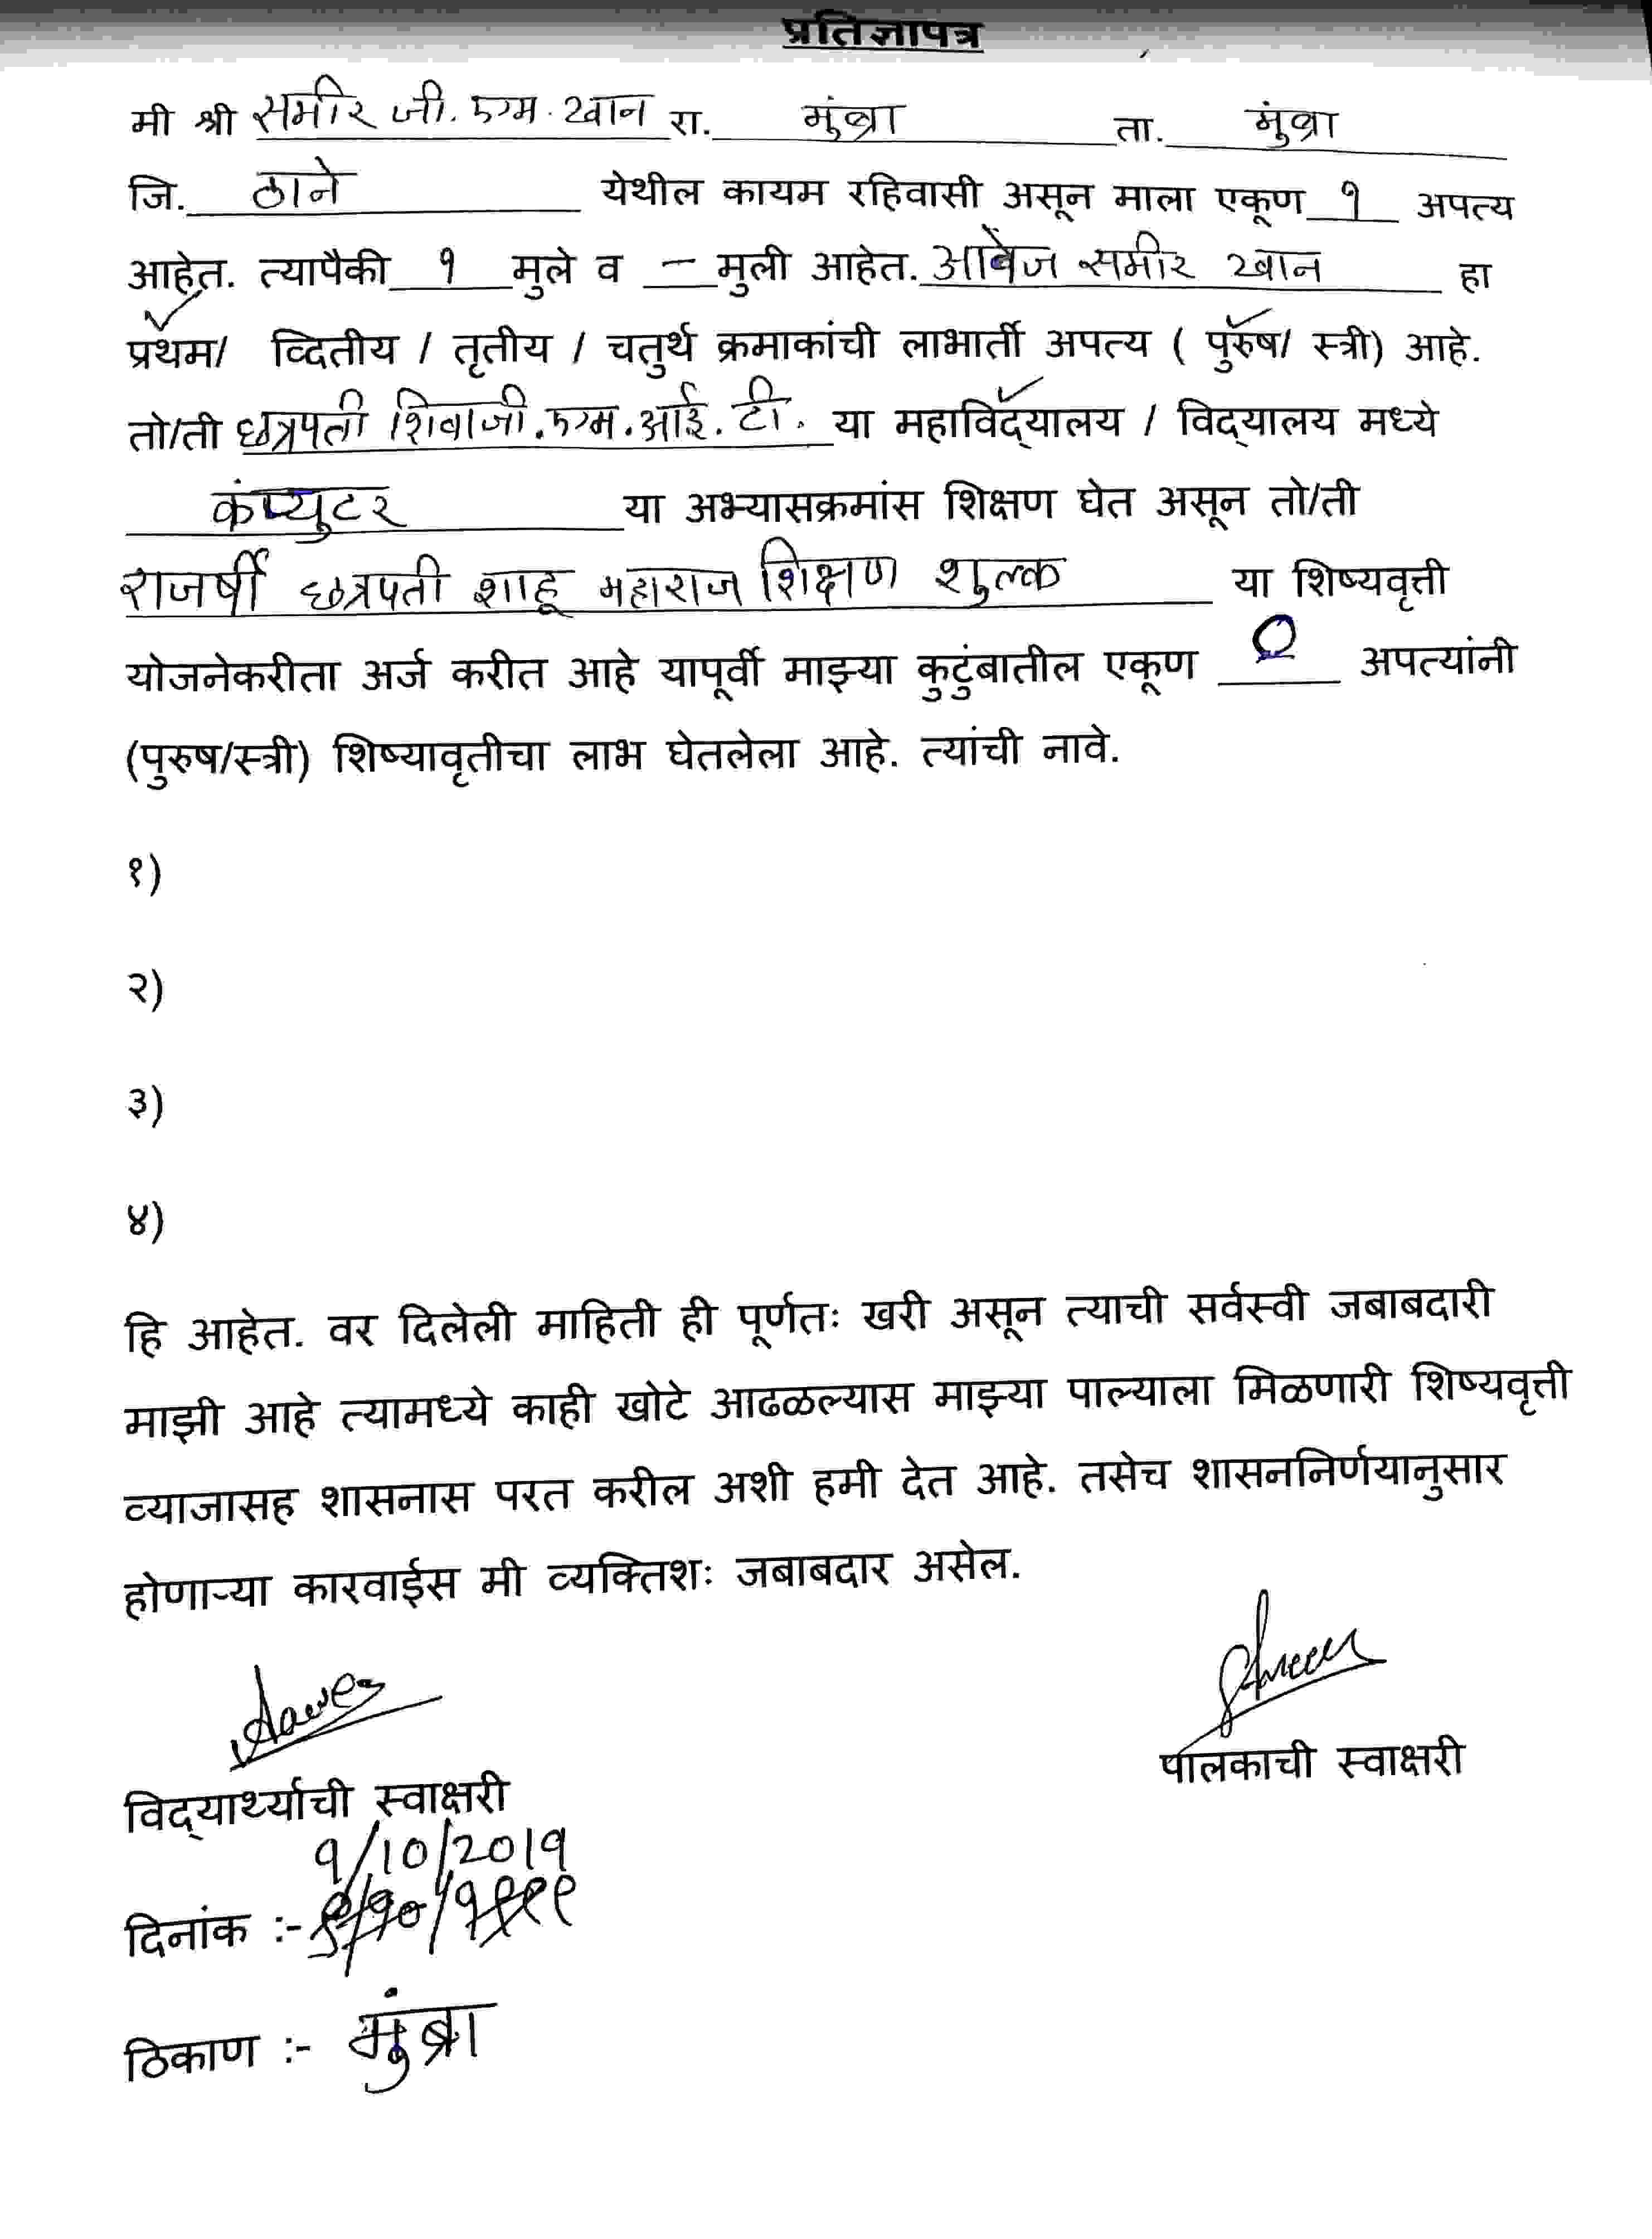 प्रतिज्ञापत्र
मी श्री समीर जी. एम. खान रा. मुंब्रा ता. मुंब्रा
जि. ठाने येथील कायम रहिवासी असून माला एकूण १ अपत्य
आहेत. त्यापैकी १ मुले व — मुली आहेत. आवेज समीर खान हा
प्रथम/ व्दितीय / तृतीय / चतुर्थ क्रमाकांची लाभार्ती अपत्य ( पुरुष/ स्त्री) आहे.
तो/ती छत्रपती शिवाजी.एम.आई.टी. या महाविद्यालय / विद्यालय मध्ये
कंप्युटर या अभ्यासक्रमांस शिक्षण घेत असून तो/ती
राजर्षी छत्रपती शाहू महाराज शिक्षण शुल्क या शिष्यवृत्ती
योजनेकरीता अर्ज करीत आहे यापूर्वी माझ्या कुटुंबातील एकूण 0 अपत्यांनी
(पुरुष/स्त्री) शिष्यावृतीचा लाभ घेतलेला आहे. त्यांची नावे.
१)
२)
३)
४)
हि आहेत. वर दिलेली माहिती ही पूर्णतः खरी असून त्याची सर्वस्वी जबाबदारी
माझी आहे त्यामध्ये काही खोटे आढळल्यास माझ्या पाल्याला मिळणारी शिष्यवृत्ती
व्याजासह शासनास परत करील अशी हमी देत आहे. तसेच शासननिर्णयानुसार
होणाऱ्या कारवाईस मी व्यक्तिशः जबाबदार असेल.
पालकाची स्वाक्षरी
विद्यार्थ्याची स्वाक्षरी
9/10/2019
दिनांक :-
ठिकाण :- मुंब्रा